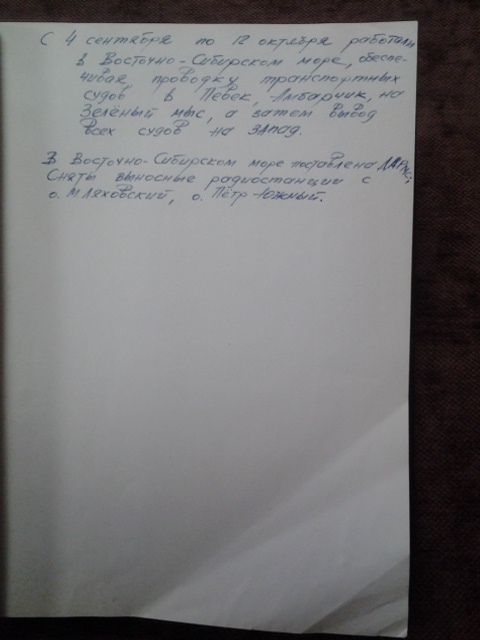 С 4 сентября по 12 октября работали
в Восточно-Сибирском море, обеспе-
чивая проводку транспортных
судов в Певек, Амбарчик, на
Зелёный мыс, а затем вывод
всех судов на запад.
В Восточно-Сибирском море поставлена ДАРМС;
Сняты выносные радиостанции с
о. М Ляховский, о. Пётр-Южный.